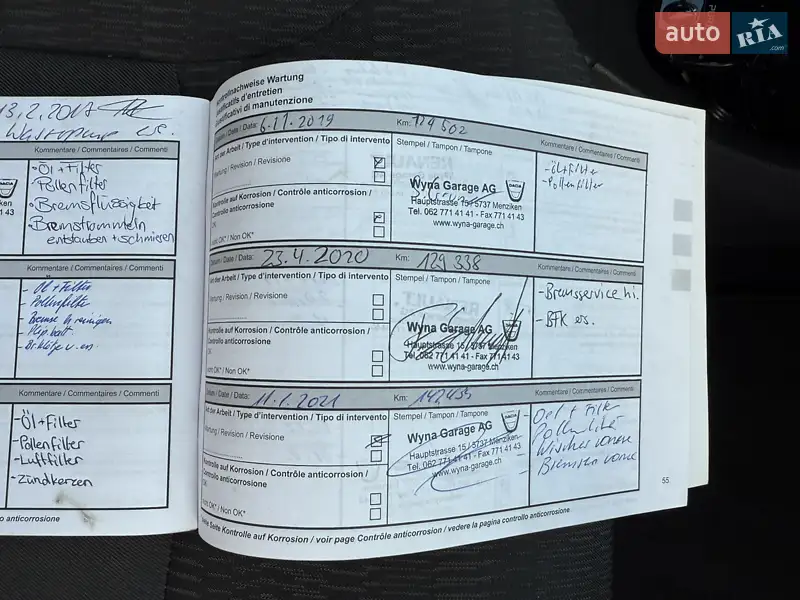 auto RIA .com
13.2.2017
Kommentare / Commentaires / Commenti
- Öl + Filter
- Pollenfilter
- Bremsflüssigkeit
- Bremstrommeln
entstauben + schmieren
DACIA
Kommentare / Commentaires / Commenti
- Öl + Filter
- Pollenfilter
Kommentare / Commentaires / Commenti
- Öl + Filter
- Pollenfilter
- Luftfilter
- Zündkerzen
o anticorrosione
Kontrollnachweise Wartung
Justificatifs d'entretien
Giustificativi di manutenzione
Datum / Date / Data: 6.11.2019 Km: 124 502
Art der Arbeit / Type d'intervention / Tipo di intervento
Wartung / Revision / Revisione
Kontrolle auf Korrosion / Contrôle anticorrosion /
Controllo anticorrosione
OK
nicht OK* / Non OK*
Stempel / Tampon / Tampone
Wyna Garage AG
DACIA
Hauptstrasse 15 / 5737 Menziken
Tel. 062 771 41 41 - Fax 771 41 43
www.wyna-garage.ch
Kommentare / Commentaires / Commenti
- Öl + Filter
- Pollenfilter
Datum / Date / Data: 23.4.2020 Km: 129 338
Art der Arbeit / Type d'intervention / Tipo di intervento
Wartung / Revision / Revisione
Kontrolle auf Korrosion / Contrôle anticorrosion /
Controllo anticorrosione
OK
nicht OK* / Non OK*
Stempel / Tampon / Tampone
Wyna Garage AG
Hauptstrasse 15 / 5737 Menziken
Tel. 062 771 41 41 - Fax 771 41 43
www.wyna-garage.ch
Kommentare / Commentaires / Commenti
- Bremsservice hi.
- BFK ers.
Datum / Date / Data: 11.1.2021 Km: 142435
Art der Arbeit / Type d'intervention / Tipo di intervento
Wartung / Revision / Revisione
Kontrolle auf Korrosion / Contrôle anticorrosion /
Controllo anticorrosione
OK
nicht OK* / Non OK*
Stempel / Tampon / Tampone
Wyna Garage AG
DACIA
Hauptstrasse 15 / 5737 Menziken
Tel. 062 771 41 41 - Fax 771 41 43
www.wyna-garage.ch
Kommentare / Commentaires / Commenti
- Oel + Filter
- Pollenfilter
- Wischer vorne
- Bremsen vorne
55
Siehe Seite Kontrolle auf Korrosion / voir page Contrôle anticorrosion / vedere la pagina controllo anticorrosione